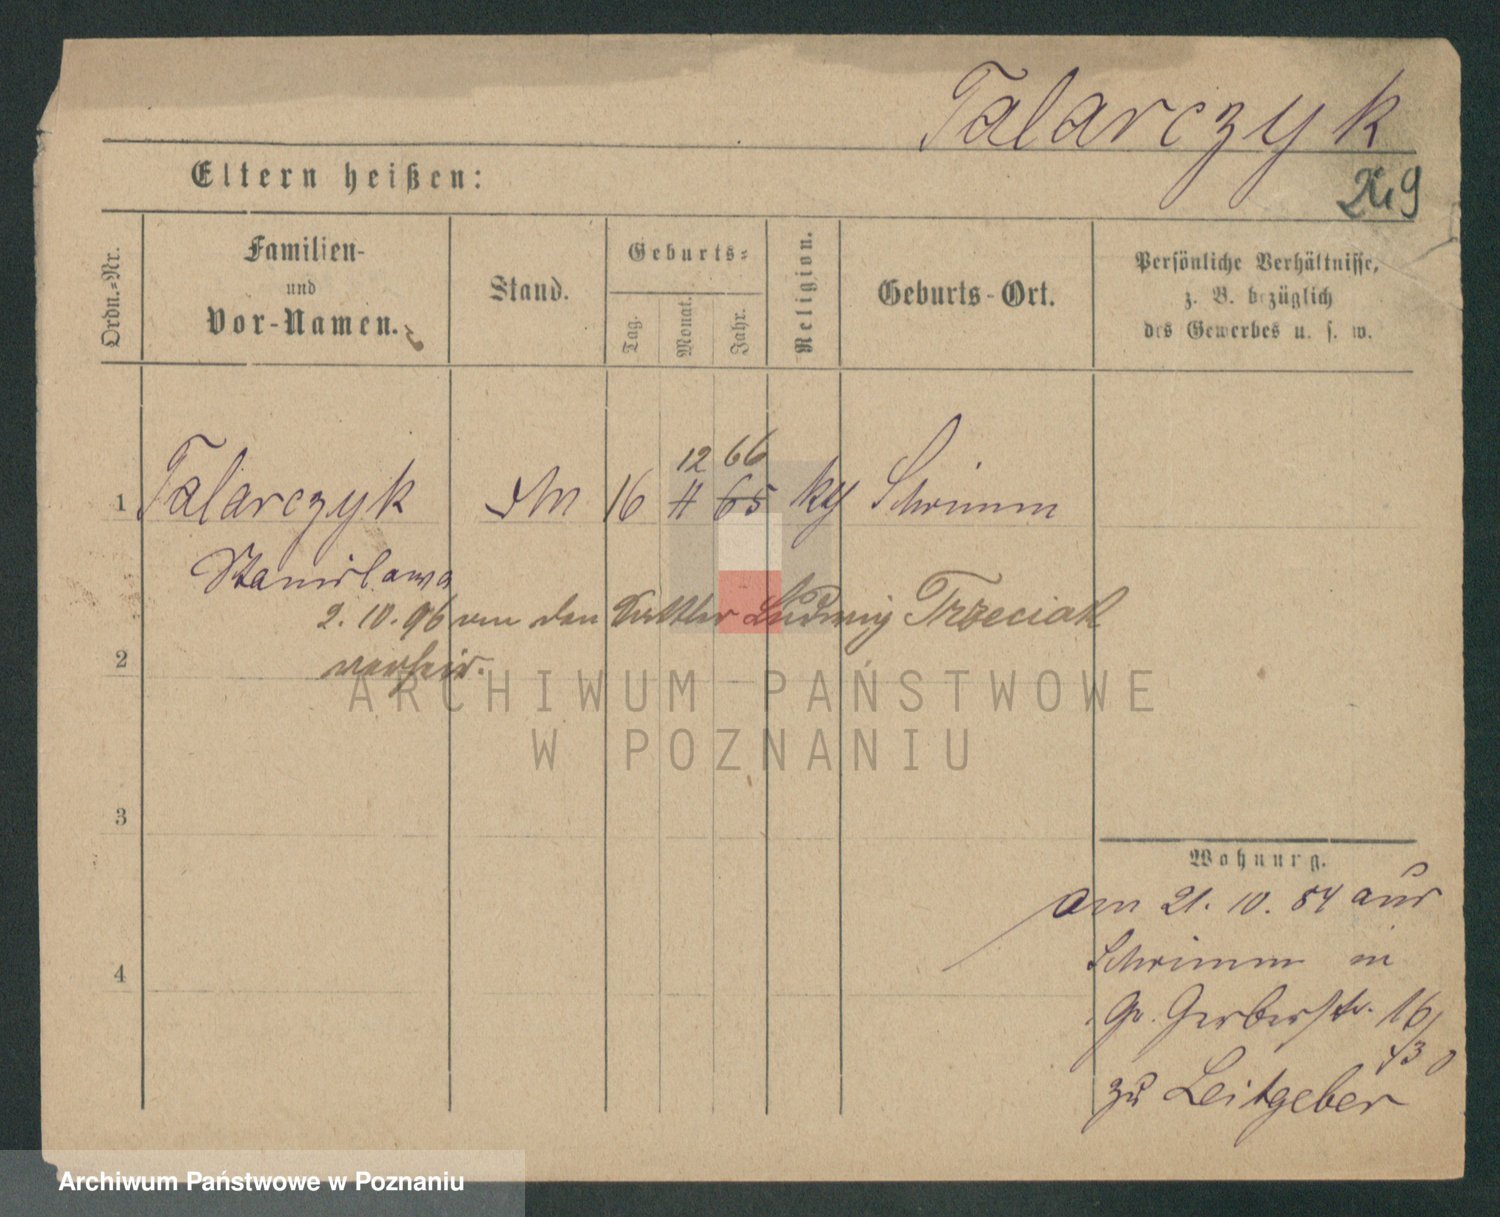 Talarczyk
Eltern heißen:
Ordn.-Nr.
Familien-
und
Vor-Namen.
Stand.
Geburts-
Tag.
Monat.
Jahr.
Religion.
Geburts-Ort.
Persönliche Verhältnisse,
z. B. bezüglich
des Gewerbes u. s. w.
12 66
1 Talarczyk 16 11 65 kg Schrimm
Stanislawa
2. 10. 96 an den Sattler Ludwig Trzeciak
2
verheir.
ARCHIWUM PAŃSTWOWE
W POZNANIU
3
Wohnung.
am 21. 10. 84 aus
4
Schrimm in
Gr. Gerberstr. 16
zu Leitgeber
Archiwum Państwowe w Poznaniu